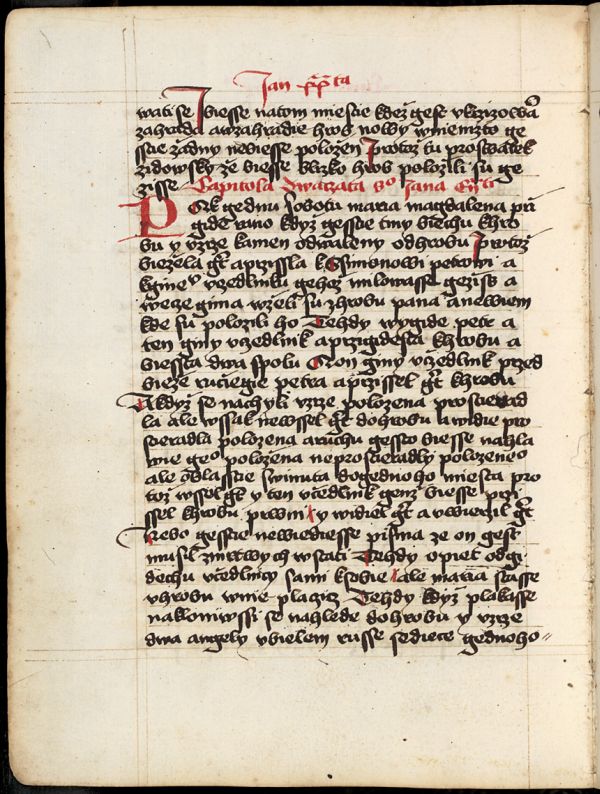 Jan xxta
wati se Ibiesse natom miestie kdež gest vkrizowã
zahrada awzahradie hrob nowy wniemzto ge
sstie žadny nebiesse položen Protož tu proswatek
židowsky že biesse blizko hrob položili su ge
zisse Capitola Dwatzata swo Jana
PO Rk gednu sobotu maria magdalena prii
gide rano když gesstie tmy biechu khro
bu y vzrze kamen odwaleny odhrobu Protož
biezela gt aprzissla k Ssimonowi petrowi a
kgineu vczedlniku gehoz milowasse gezijss a
wecze gima wzeli su zhrobu pana anewiem
kde su polozili ho Tehdy wygide petr a
ten giny vczedlnik aprzigidesta khrobu a
biessta dwa spolu A on giny vczedlnik przed
bieze ruciegie petra aprzissel gt khrobu
Akdyz se nachyli vzrze polozena prosticerad
la ale wssak newssel gt dohrobu awidie pro
scieradla polozena aruchu gessto biesse nahla
wie geo polozena neproscieradly polozeneo
ale obllasstie swinuta dogednoho miesta pro
toz wssel gt y ten vczedlnik genz biesse przi
ssel khrobu prwni y widiel gt a vwierzil gt
Nebo gesstie newiediesse pisma ze on gest
musil zmrtwych wstati Tehdy opiet odgi
dechu vczedlnicy sami ksobie ale maria stasse
vhrobu wnie placzic Tehdy kdyz plakasse
nakloniwssi se nahlede dohrobu y vzrze
dwa angely vbielem russe sediece gednoho